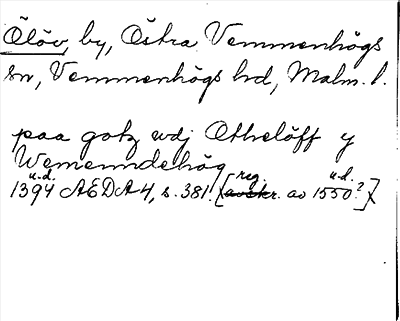 Ölöv, by, Östra Vemmenhögs
sn, Vemmenhögs hd, Malm. l.
paa gotz udj Othelöff y
Wemenndehög
u.d. reg. u.d.
1394 AEDA 4, s. 381. [avskr. av 1550?]